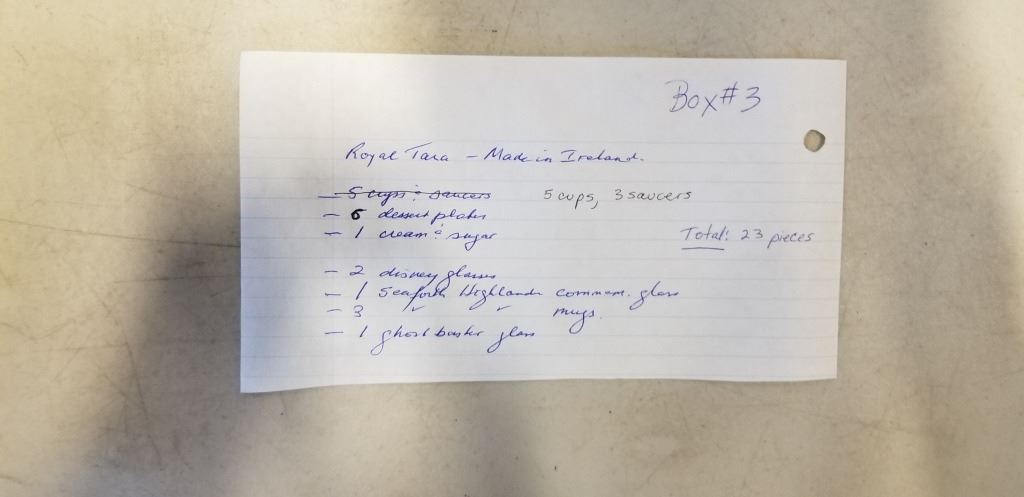 Box #3
Royal Tara - Made in Ireland.
- 5 cups & saucers 5 cups, 3 saucers
- 6 dessert plates
- 1 cream & sugar
Total: 23 pieces
- 2 disney glasses
- 1 Seaforth Highlander commem. glass
- 3 " " mugs.
- 1 ghostbuster glass